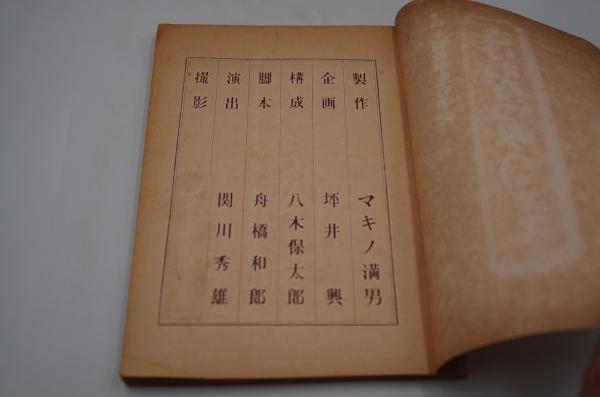 製作　マキノ満男
企画　坪井興
構成　八木保太郎
脚本　舟橋和郎
演出　関川秀雄
撮影